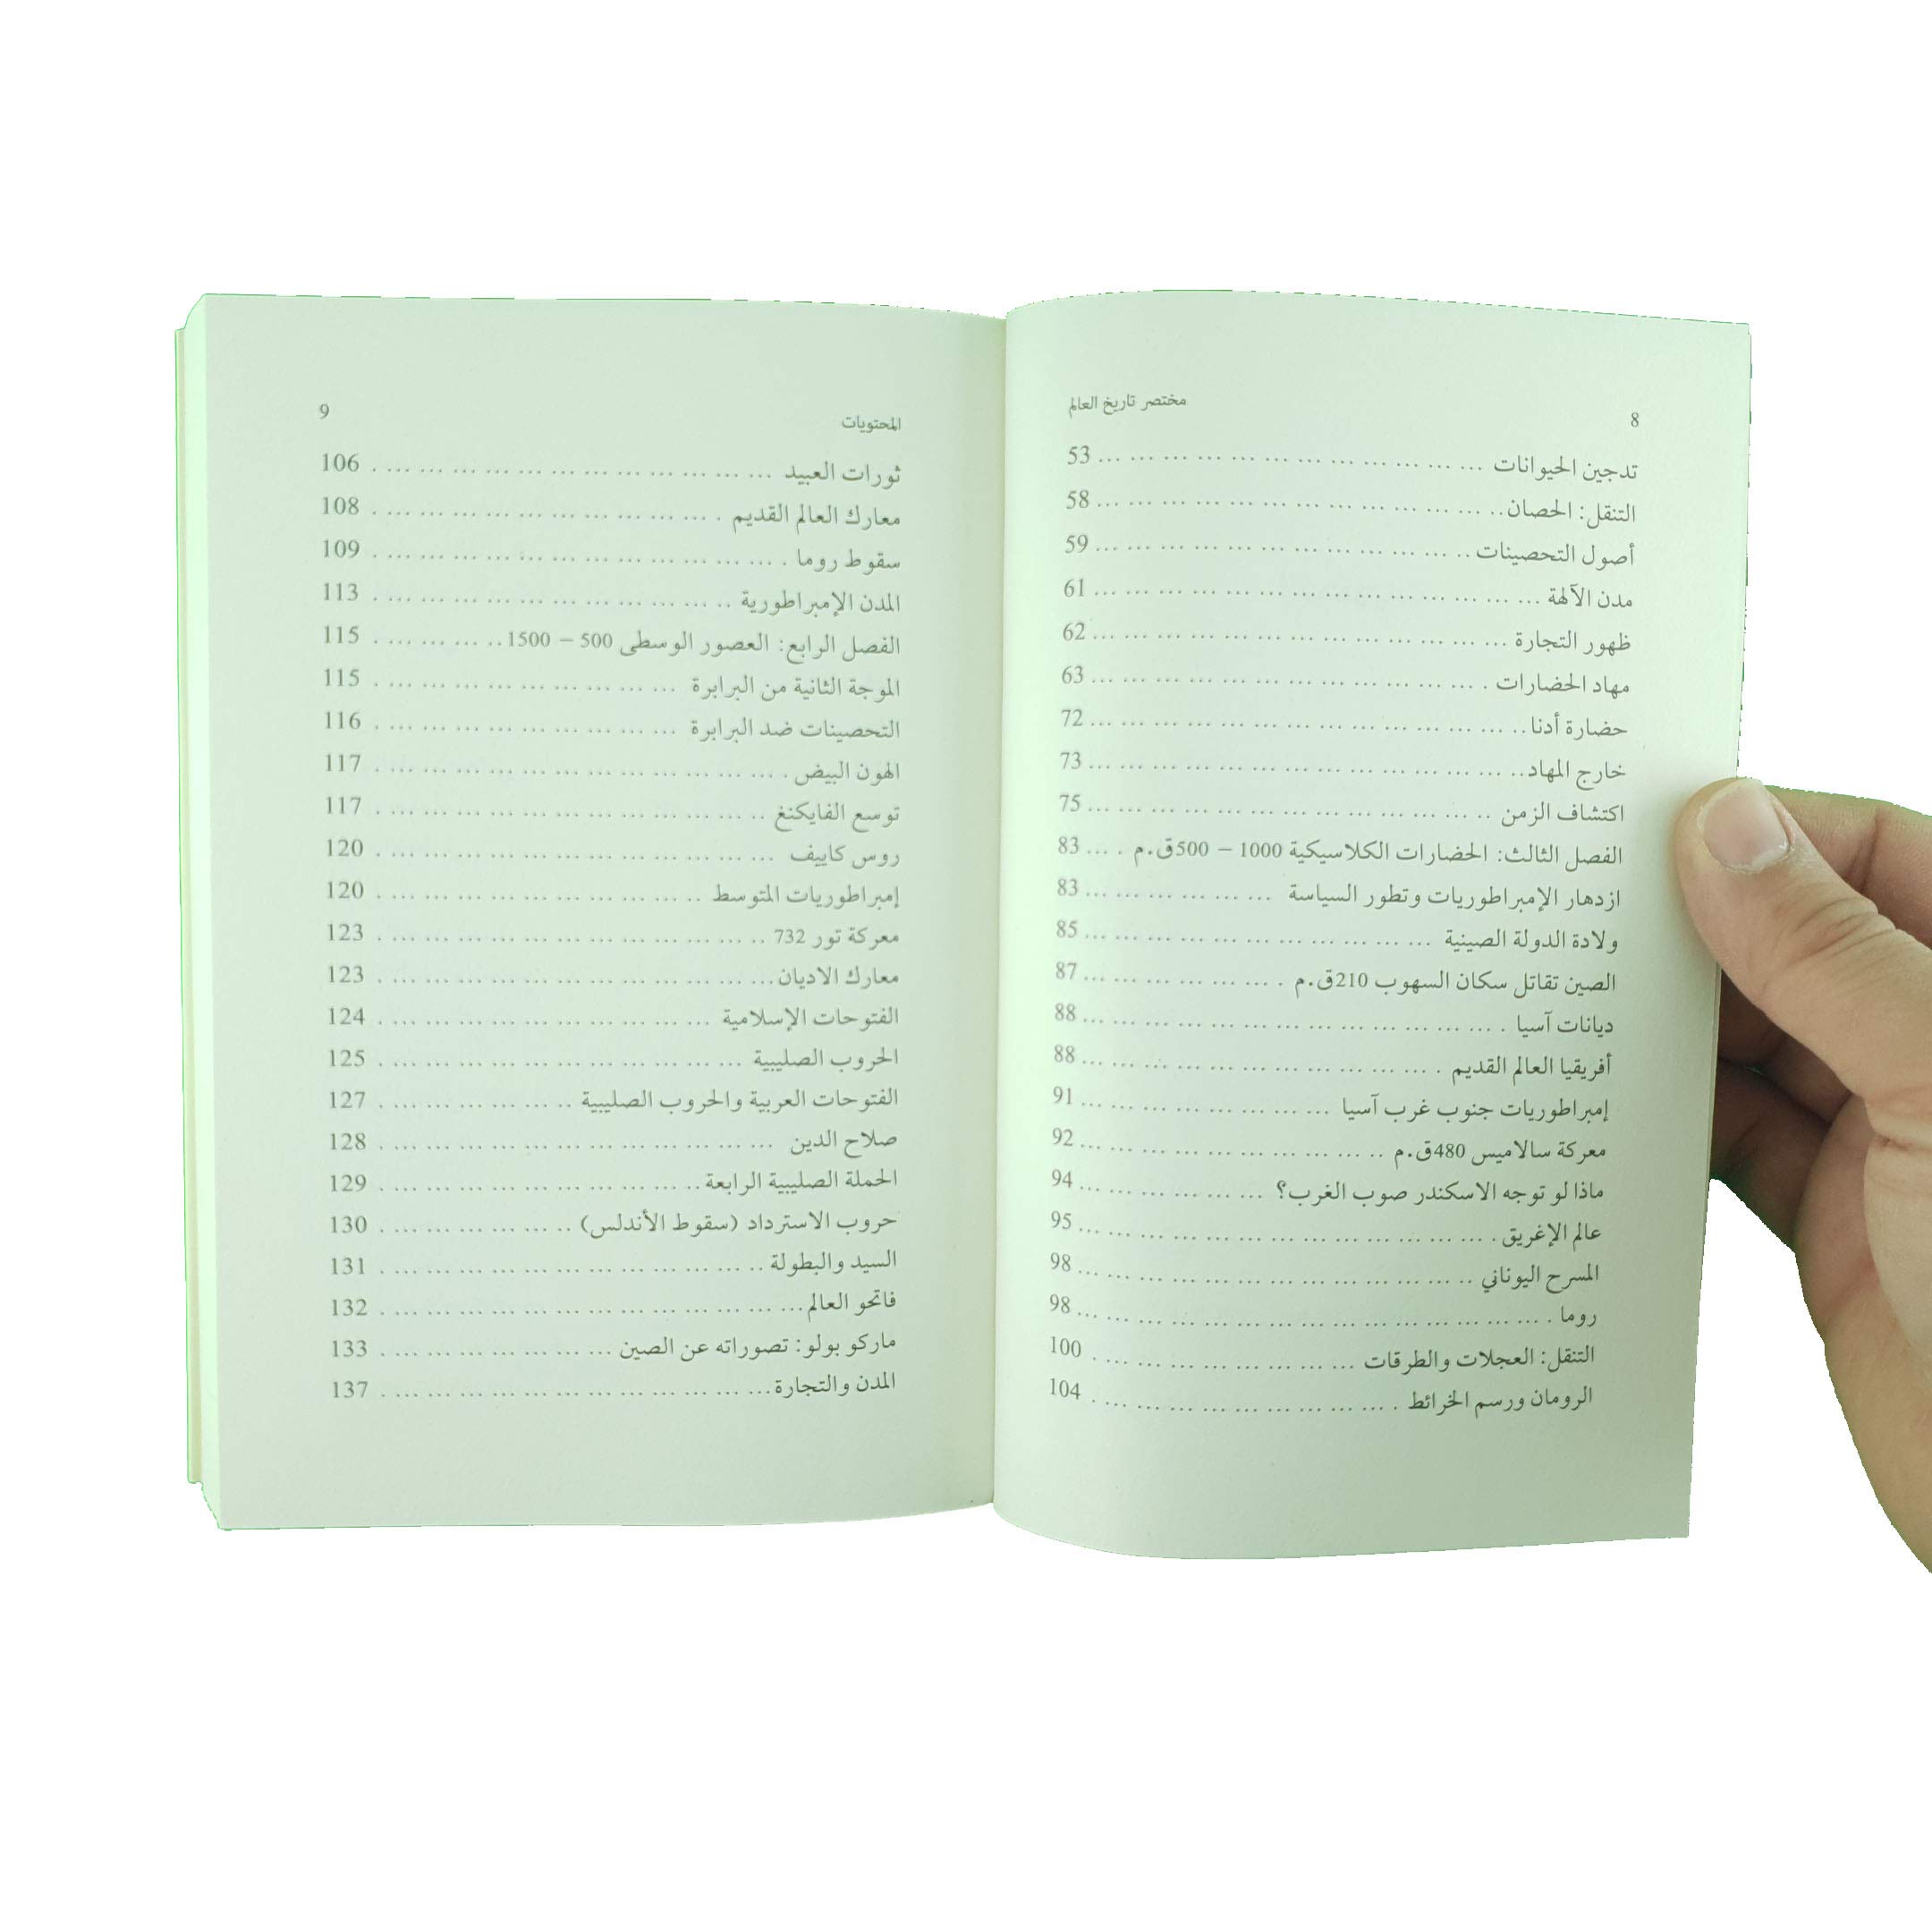 8 مختصر تاريخ العالم
تدجين الحيوانات ... ... ... ... ... ... ... ... ... ... ... ... 53
التنقل: الحصان.. ... ... ... ... ... ... ... ... ... ... ... ... 58
أصول التحصينات.. ... ... ... ... ... ... ... ... ... ... ... ... 59
مدن الآلهة ... ... ... ... ... ... ... ... ... ... ... ... ... ... 61
ظهور التجارة ... ... ... ... ... ... ... ... ... ... ... ... ... 62
مهاد الحضارات . ... ... ... ... ... ... ... ... ... ... ... ... 63
حضارة أدنا.. ... ... ... ... ... ... ... ... ... ... ... ... ... 72
خارج المهاد.. ... ... ... ... ... ... ... ... ... ... ... ... ... 73
اكتشاف الزمن .. ... ... ... ... ... ... ... ... ... ... ... ... 75
الفصل الثالث: الحضارات الكلاسيكية 1000 – 500ق.م . ... 83
ازدهار الإمبراطوريات وتطور السياسة ... ... ... ... ... ... 83
ولادة الدولة الصينية ... ... ... ... ... ... ... ... ... ... ... 85
الصين تقاتل سكان السهوب 210ق.م . ... ... ... ... ... ... 87
ديانات آسيا . ... ... ... ... ... ... ... ... ... ... ... ... ... 88
أفريقيا العالم القديم . ... ... ... ... ... ... ... ... ... ... ... 88
إمبراطوريات جنوب غرب آسيا ... ... ... ... ... ... ... ... 91
معركة سالاميس 480ق.م .. ... ... ... ... ... ... ... ... ... 92
ماذا لو توجه الاسكندر صوب الغرب؟ ... ... ... ... ... ... 94
عالم الإغريق . ... ... ... ... ... ... ... ... ... ... ... ... ... 95
المسرح اليوناني .. ... ... ... ... ... ... ... ... ... ... ... ... 98
روما . ... ... ... ... ... ... ... ... ... ... ... ... ... ... ... 98
التنقل: العجلات والطرقات ... ... ... ... ... ... ... ... . 100
الرومان ورسم الخرائط . ... ... ... ... ... ... ... ... ... . 104
المحتويات 9
ثورات العبيد ... ... ... ... ... ... ... ... ... ... ... ... . 106
معارك العالم القديم . ... ... ... ... ... ... ... ... ... ... . 108
سقوط روما . ... ... ... ... ... ... ... ... ... ... ... ... . 109
المدن الإمبراطورية .. ... ... ... ... ... ... ... ... ... ... . 113
الفصل الرابع: العصور الوسطى 500 – 1500.. ... ... ... . 115
الموجة الثانية من البرابرة ... ... ... ... ... ... ... ... ... . 115
التحصينات ضد البرابرة ... ... ... ... ... ... ... ... ... . 116
الهون البيض . ... ... ... ... ... ... ... ... ... ... ... ... . 117
توسع الفايكنغ .. ... ... ... ... ... ... ... ... ... ... ... . 117
روس كاييف ... ... ... ... ... ... ... ... ... ... ... ... . 120
إمبراطوريات المتوسط .. ... ... ... ... ... ... ... ... ... . 120
معركة تور 732 .. ... ... ... ... ... ... ... ... ... ... ... . 123
معارك الاديان... ... ... ... ... ... ... ... ... ... ... ... . 123
الفتوحات الإسلامية ... ... ... ... ... ... ... ... ... ... . 124
الحروب الصليبية ... ... ... ... ... ... ... ... ... ... ... . 125
الفتوحات العربية والحروب الصليبية .. ... ... ... ... ... . 127
صلاح الدين ... ... ... ... ... ... ... ... ... ... ... ... . 128
الحملة الصليبية الرابعة.. ... ... ... ... ... ... ... ... ... . 129
حروب الاسترداد (سقوط الأندلس) .. ... ... ... ... ... . 130
السيد والبطولة .. ... ... ... ... ... ... ... ... ... ... ... . 131
فاتحو العالم... ... ... ... ... ... ... ... ... ... ... ... ... . 132
ماركو بولو: تصوراته عن الصين ... ... ... ... ... ... ... . 133
المدن والتجارة... ... ... ... ... ... ... ... ... ... ... ... . 137